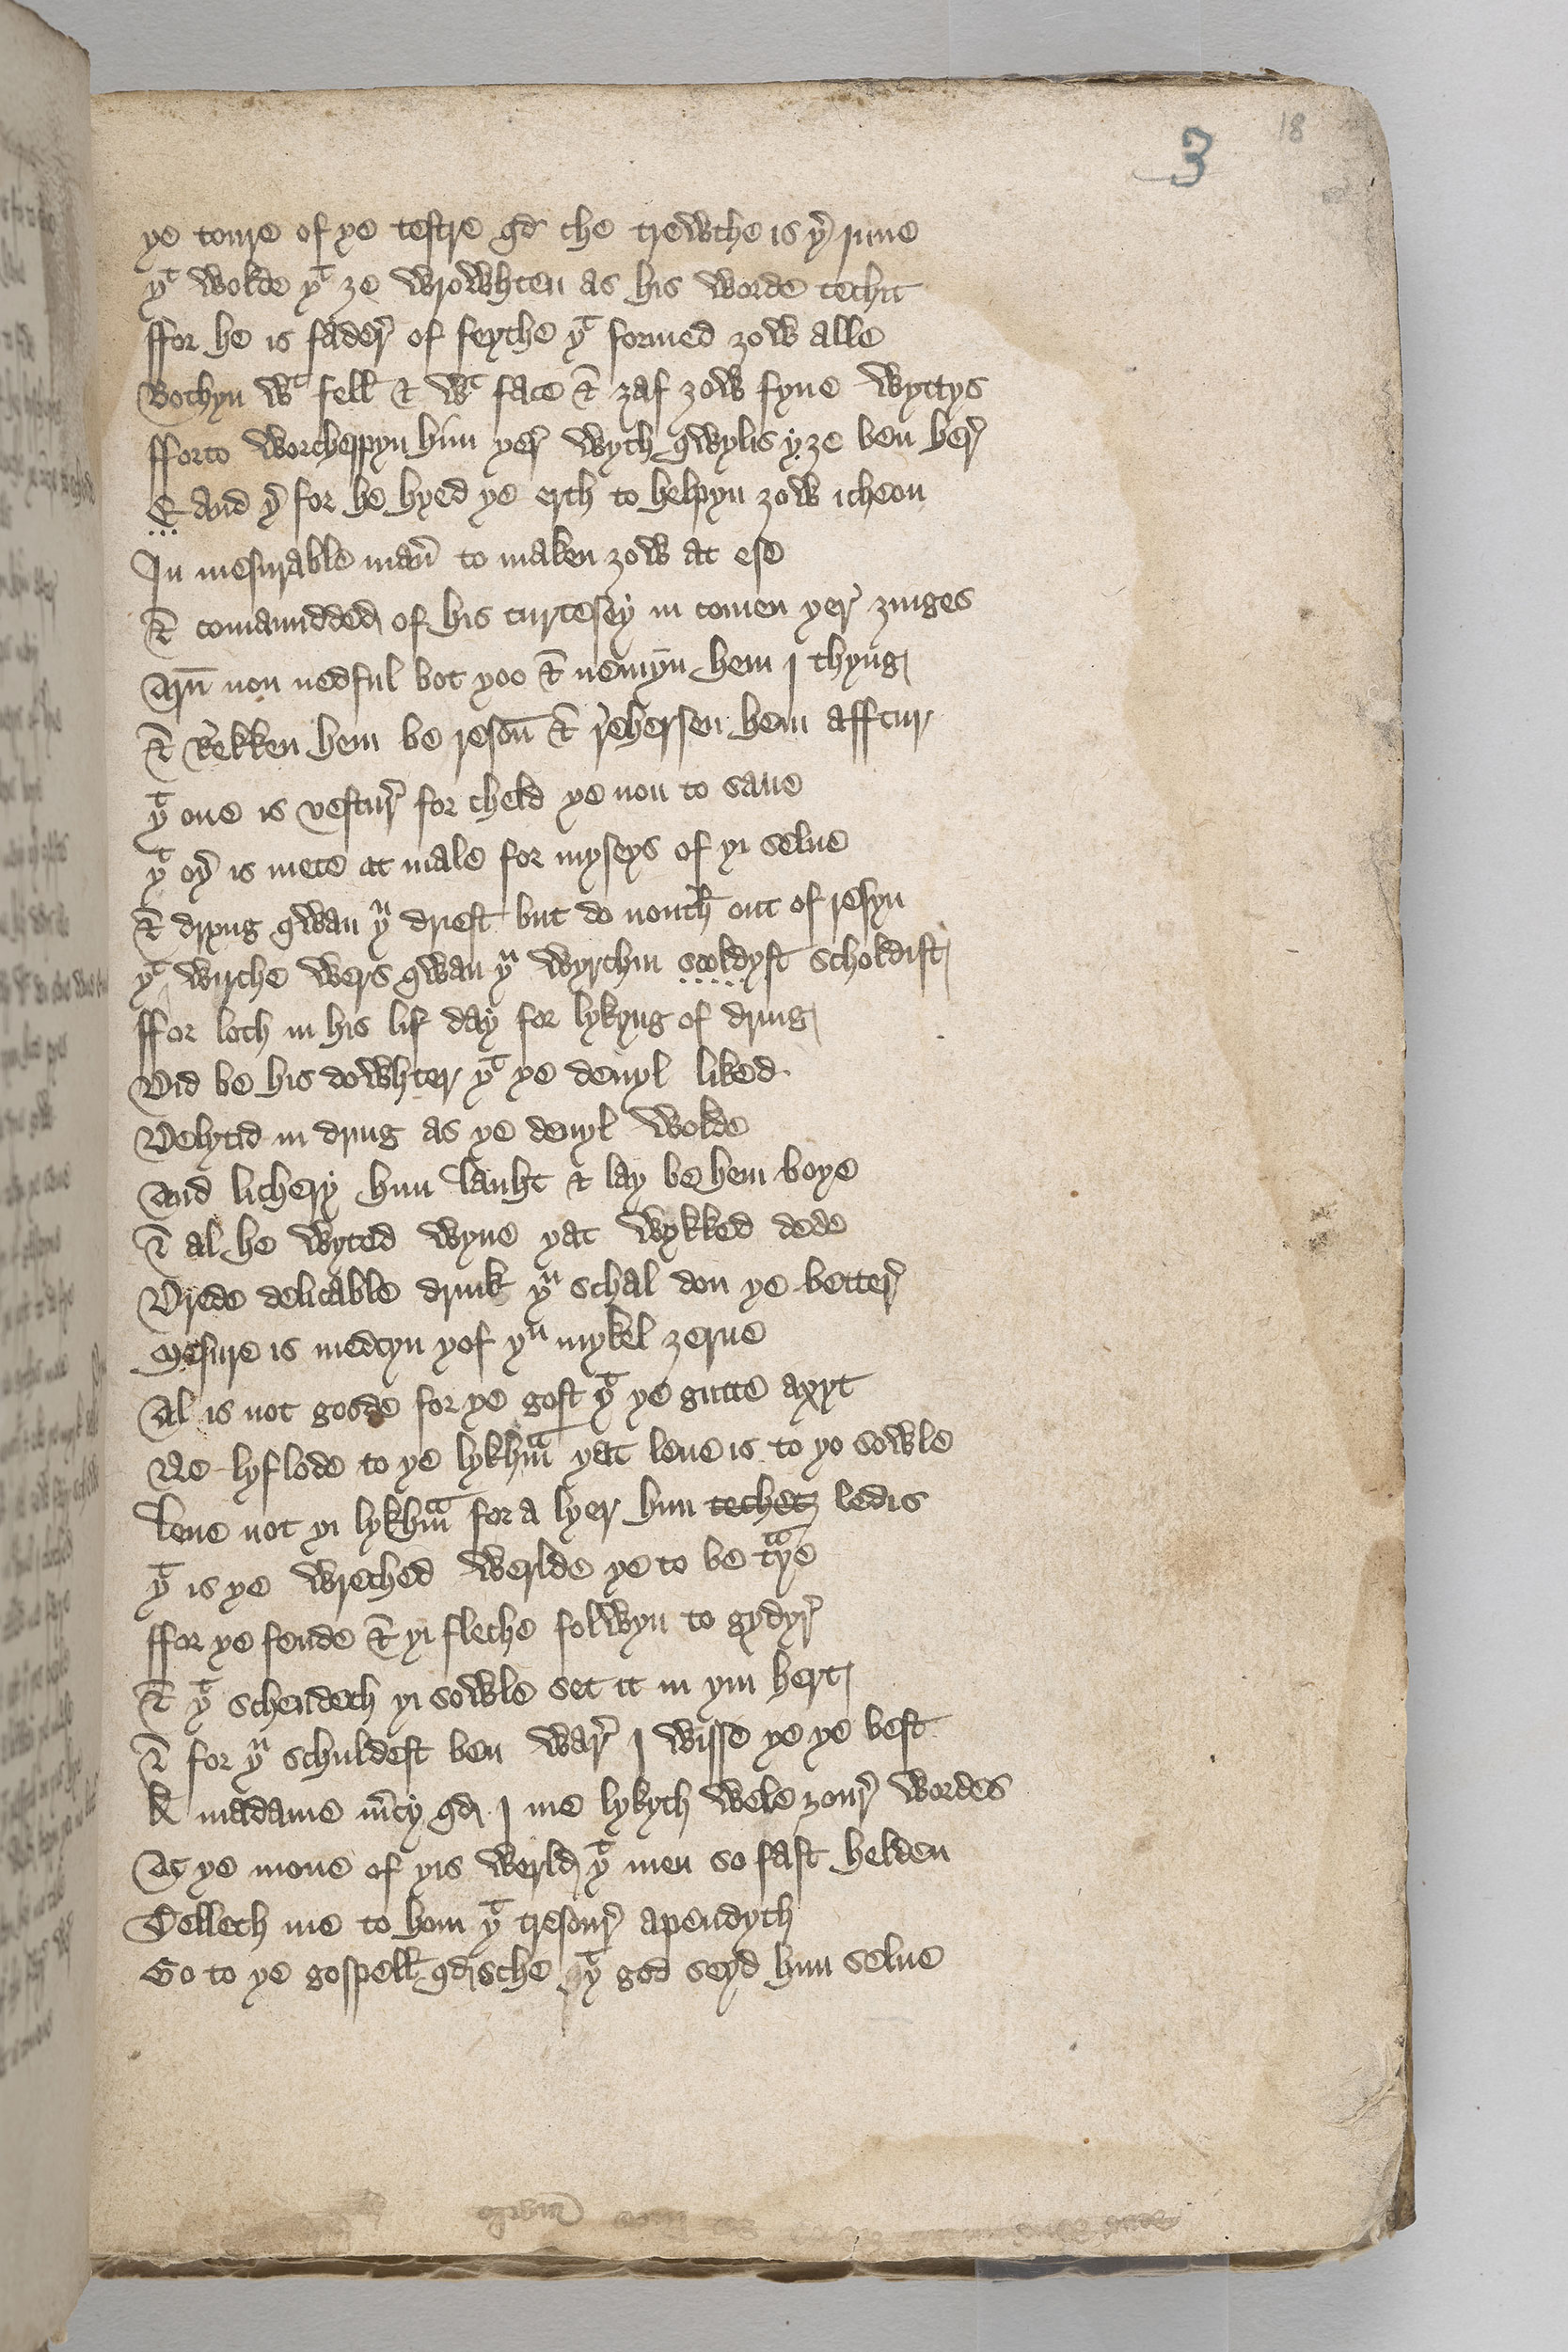 3
18
ye toure of ye testre qd che trewthe is yͬ inne
yͭ wolde yͭ ze wrowhten as his worde techit
ffor he is fader of feythe yͭ formed zow alle
Bothyn wͭ fell & wͭ face & zaf zow fyue wyttys
fforto worcheppyn him yer wyth qwylis y ze ben her
& and yͬ for he hyed ye erth to helpyn zow icheon
In mesurable man̄ to maken zow at ese
& comaundded of his curtesey in comen yer zinges
Arn̄ non nedful bot yoo & nemyn hem I thyng
& Rekken hem be reson̄ & rehersen hem afftur
yͭ one is vestur for cheld ye non to saue
yͭ oyͬ is mete at male for myseys of yi selue
& dryng qwan yͧ driest but do nouth out of resyn
yͭ wirche wers qwan yͧ wyrchin scoldyst scholdist
ffor loth in his lif day for lykyng of dring
Did be his dowhter yͭ ye deuyl liked
Delytid in dryng as ye deuyl wolde
And lichery him lauht & lay be hem boye
& al he wyted wyne yat wykked dede
Drede delitable drink yͧ schal don ye better
Mesure is medcyn yof yͧ mykel zerne
Al is not gode for ye gost yͭ ye gutte axyt
Ne lyflode to ye lykhm̄ yat leue is to yo sowle
Leue not yi lykhm̄ for a lyer him techet ledis
yͭ is ye wreched werlde ye to be tͣye
ffor ye fende & yi fleche folwyn to gydyr
& yͭ schendeth yi sowle set it in yin hert
& for yͧ schuldest ben war I wisse ye ye best
A madame m̄cy qd I me lykyth wele zour wordes
Ac ye mone of yis werld yͭ men so fast helden
Telleth me to hom yͭ tresour apendyth
Go to ye gospell qd sche yͭ god seyd him selue